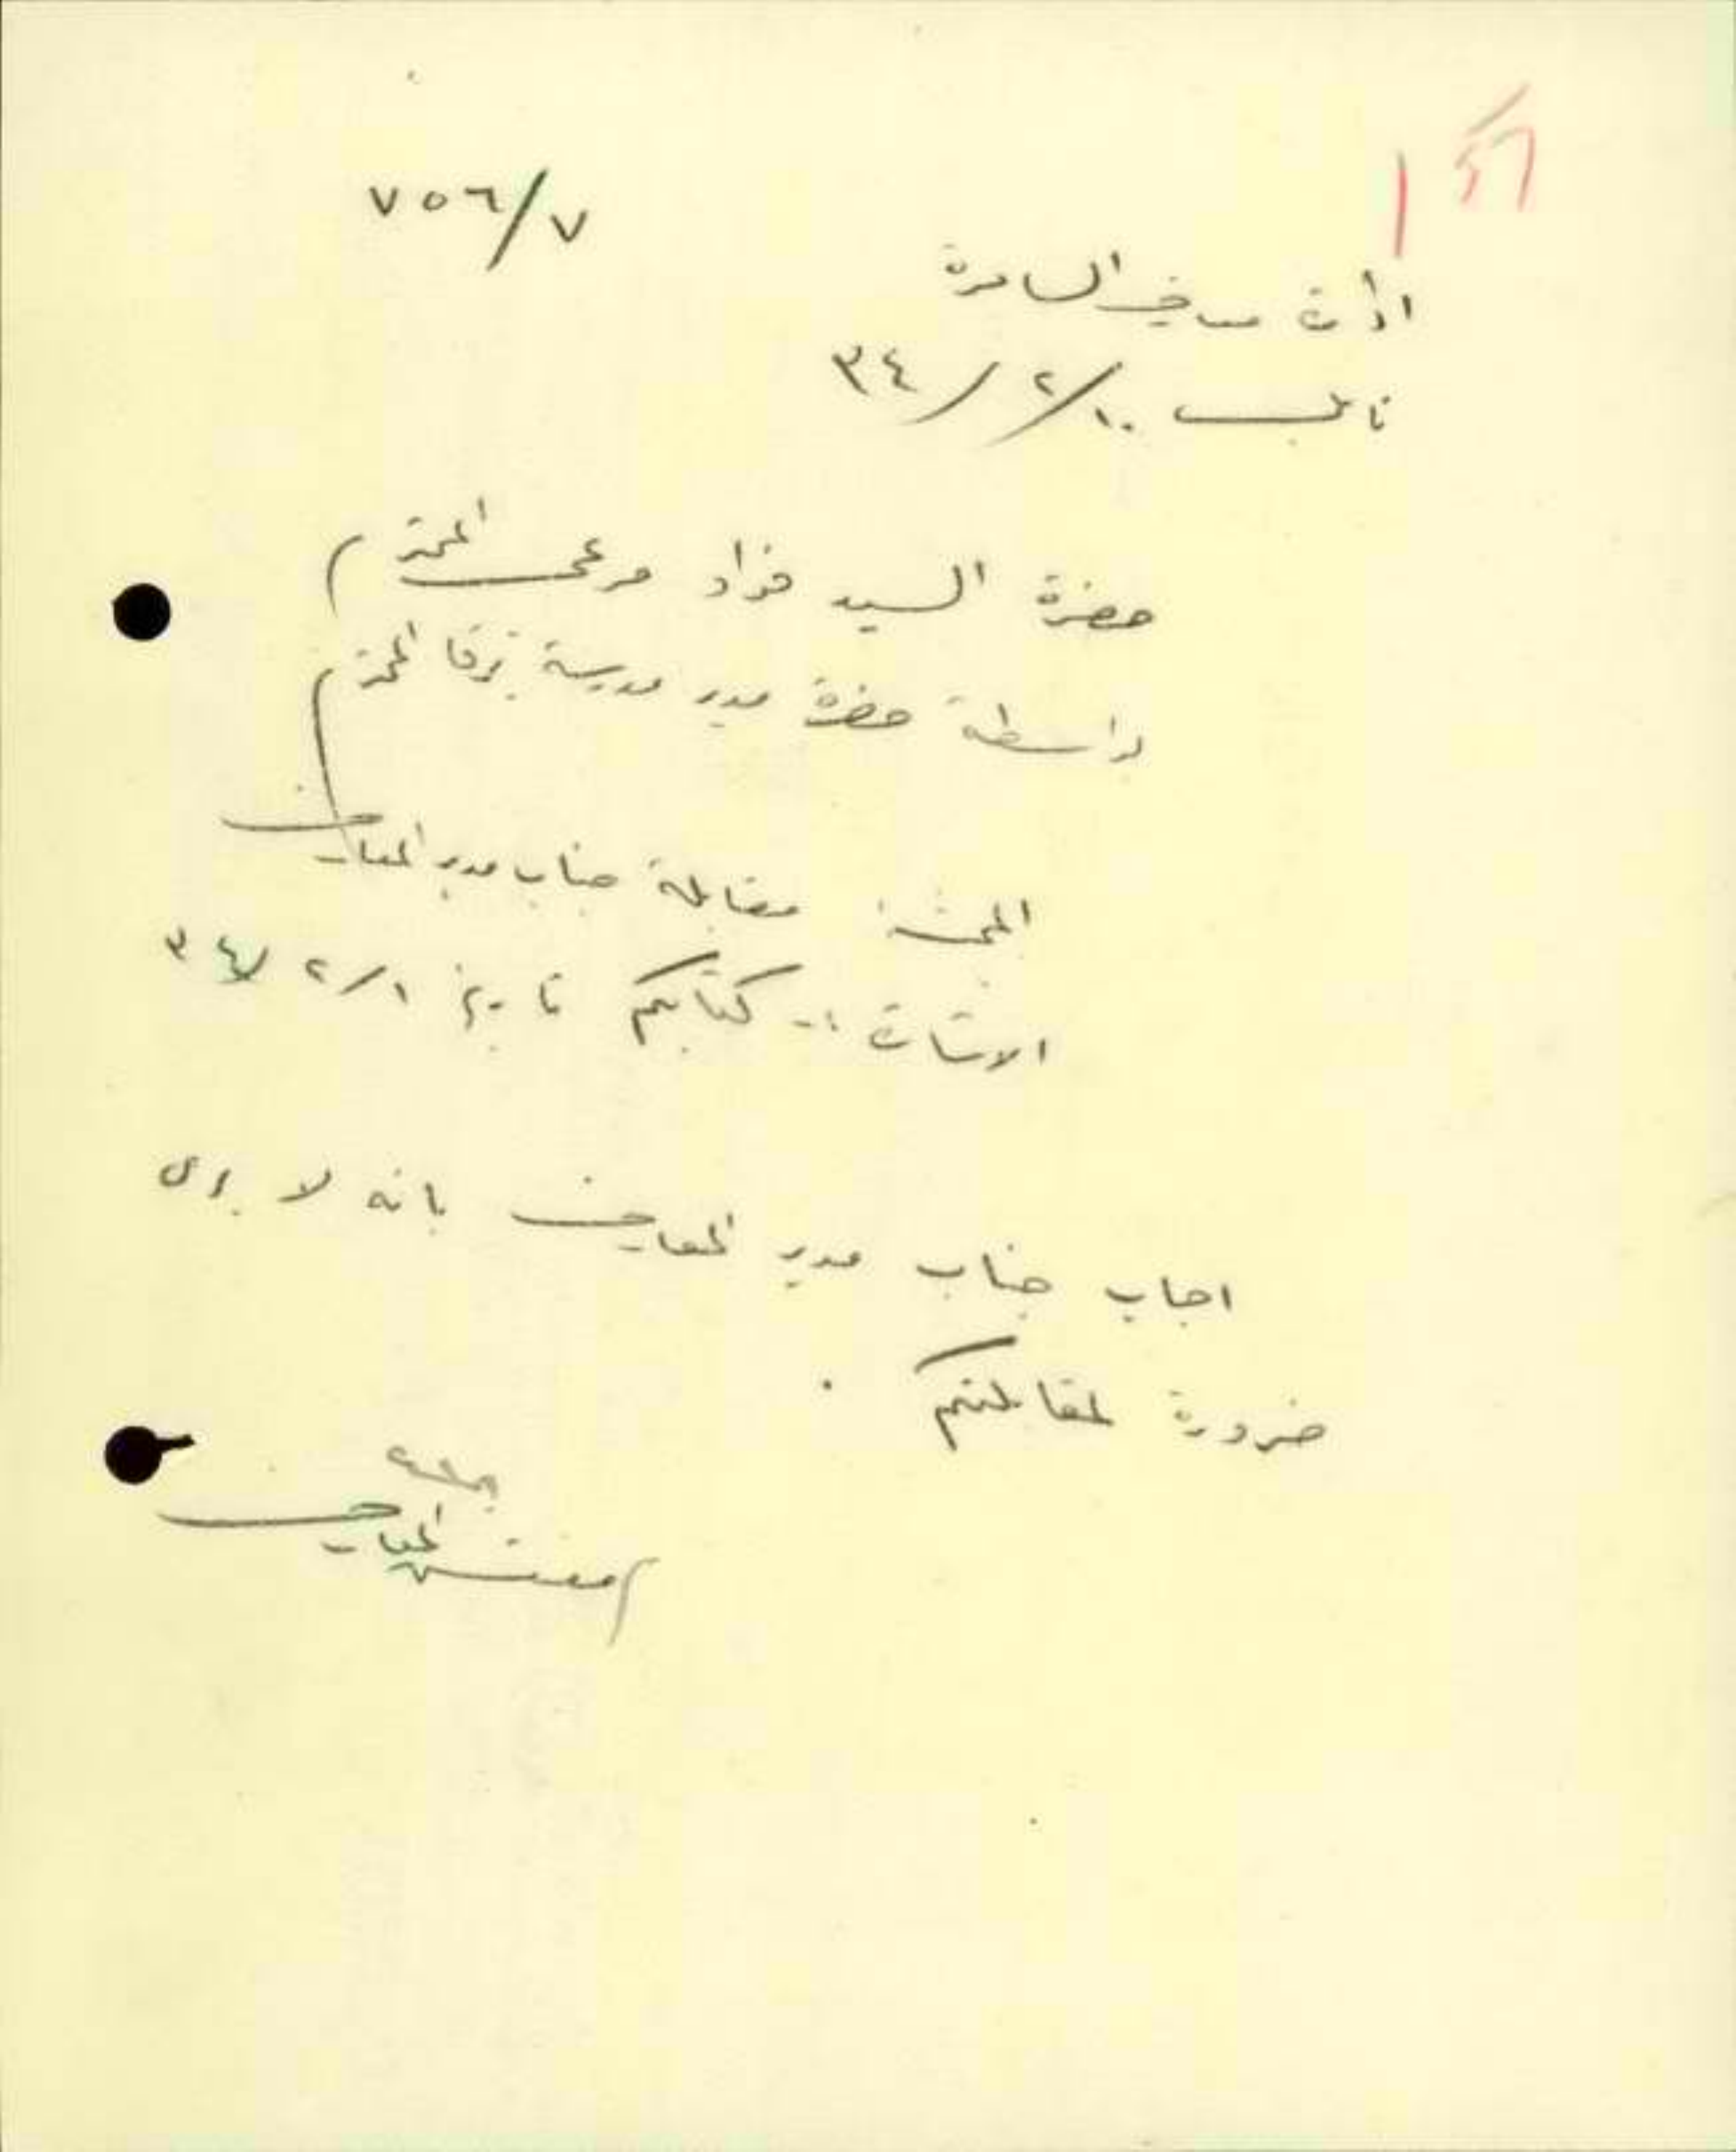 ٧٥٦/٧
ادارة معارف السامرة
نابلس ١٠/٢/٣٤
حضرة السيد فؤاد مرعي المحترم
بواسطة حضرة مدير مدرسة برقا المحترم
المبحث: مقابلة جناب مدير المعارف
الاشارة :- كتابكم تاريخ ١/٢/٣٤
اجاب جناب مدير المعارف بانه لا يرى
ضرورة لمقابلتكم .
مفتش المعارف